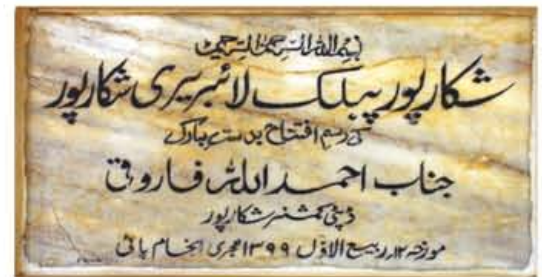 بسم اللہ الرحمٰن الرحیم
شکارپور پبلک لائبریری شکارپور
کی رسم افتتاح بدست مبارک
جناب احمد اللہ فاروقی
ڈپٹی کمشنر شکارپور
مورخہ ۱۲ ربیع الاوّل ۱۳۹۹ ہجری انجام پائی